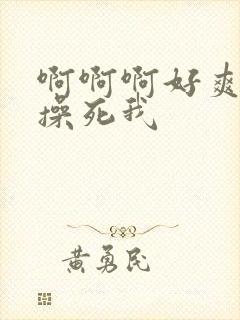 啊啊啊好爽
操死我
黄勇民